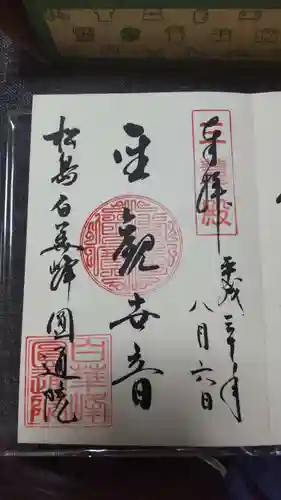 三慧殿
奉拝
平成三十年
八月六日
聖觀世音
松島白華峰圓通院
白華峰
圓通院